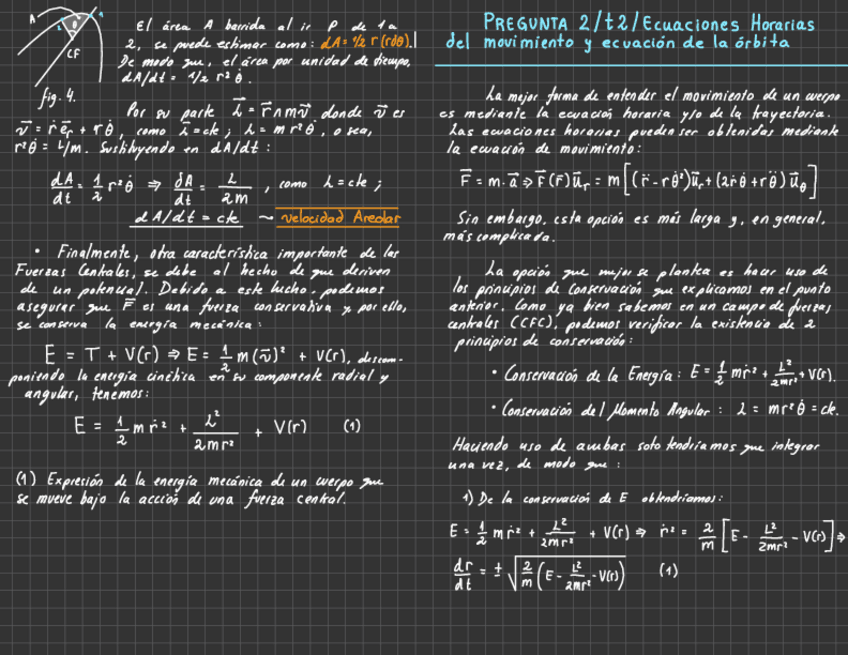 A
1
2
θ
CF
fig. 4.
El área A barrida al ir P de 1 a
2, se puede estimar como: dA = 1/2 r (rdθ).
De modo que, el área por unidad de tiempo,
dA/dt = 1/2 r² θ̇.
Por su parte L⃗ = r⃗ ∧ m v⃗ donde v⃗ es
v⃗ = ṙ e⃗r + r θ̇, como L⃗ = cte; L = m r² θ̇, o sea,
r² θ̇ = L/m. Sustituyendo en dA/dt:
dA/dt = 1/2 r² θ̇ ⇒ dA/dt = L/2m, como L = cte;
dA/dt = cte ~ velocidad Areolar
• Finalmente, otra característica importante de las
Fuerzas Centrales, se debe al hecho de que deriven
de un potencial. Debido a este hecho, podemos
asegurar que F⃗ es una fuerza conservativa y, por ello,
se conserva la energía mecánica:
E = T + V(r) ⇒ E = 1/2 m (v⃗)² + V(r), descom-
poniendo la energía cinética en su componente radial y
angular, tenemos:
E = 1/2 m ṙ² + L²/2mr² + V(r) (1)
(1) Expresión de la energía mecánica de un cuerpo que
se mueve bajo la acción de una fuerza central.
PREGUNTA 2/t2/Ecuaciones Horarias
del movimiento y ecuación de la órbita
La mejor forma de entender el movimiento de un cuerpo
es mediante la ecuación horaria y/o de la trayectoria.
Las ecuaciones horarias pueden ser obtenidas mediante
la ecuación de movimiento:
F⃗ = m · a⃗ ⇒ F⃗(r⃗) u⃗r = m [(r̈ - r θ̇²) u⃗r + (2ṙ θ̇ + r θ̈) u⃗θ]
Sin embargo, esta opción es más larga y, en general,
más complicada.
La opción que mejor se plantea es hacer uso de
los principios de conservación que explicamos en el punto
anterior. Como ya bien sabemos en un campo de fuerzas
centrales (CFC), podemos verificar la existencia de 2
principios de conservación:
• Conservación de la Energía: E = 1/2 m ṙ² + L²/2mr² + V(r).
• Conservación del Momento Angular: L = m r² θ̇ = cte.
Haciendo uso de ambas solo tendríamos que integrar
una vez, de modo que:
1) De la conservación de E obtendríamos:
E = 1/2 m ṙ² + L²/2mr² + V(r) ⇒ ṙ² = 2/m [E - L²/2mr² - V(r)] ⇒
dr/dt = ± √(2/m (E - L²/2mr² - V(r))) (1)